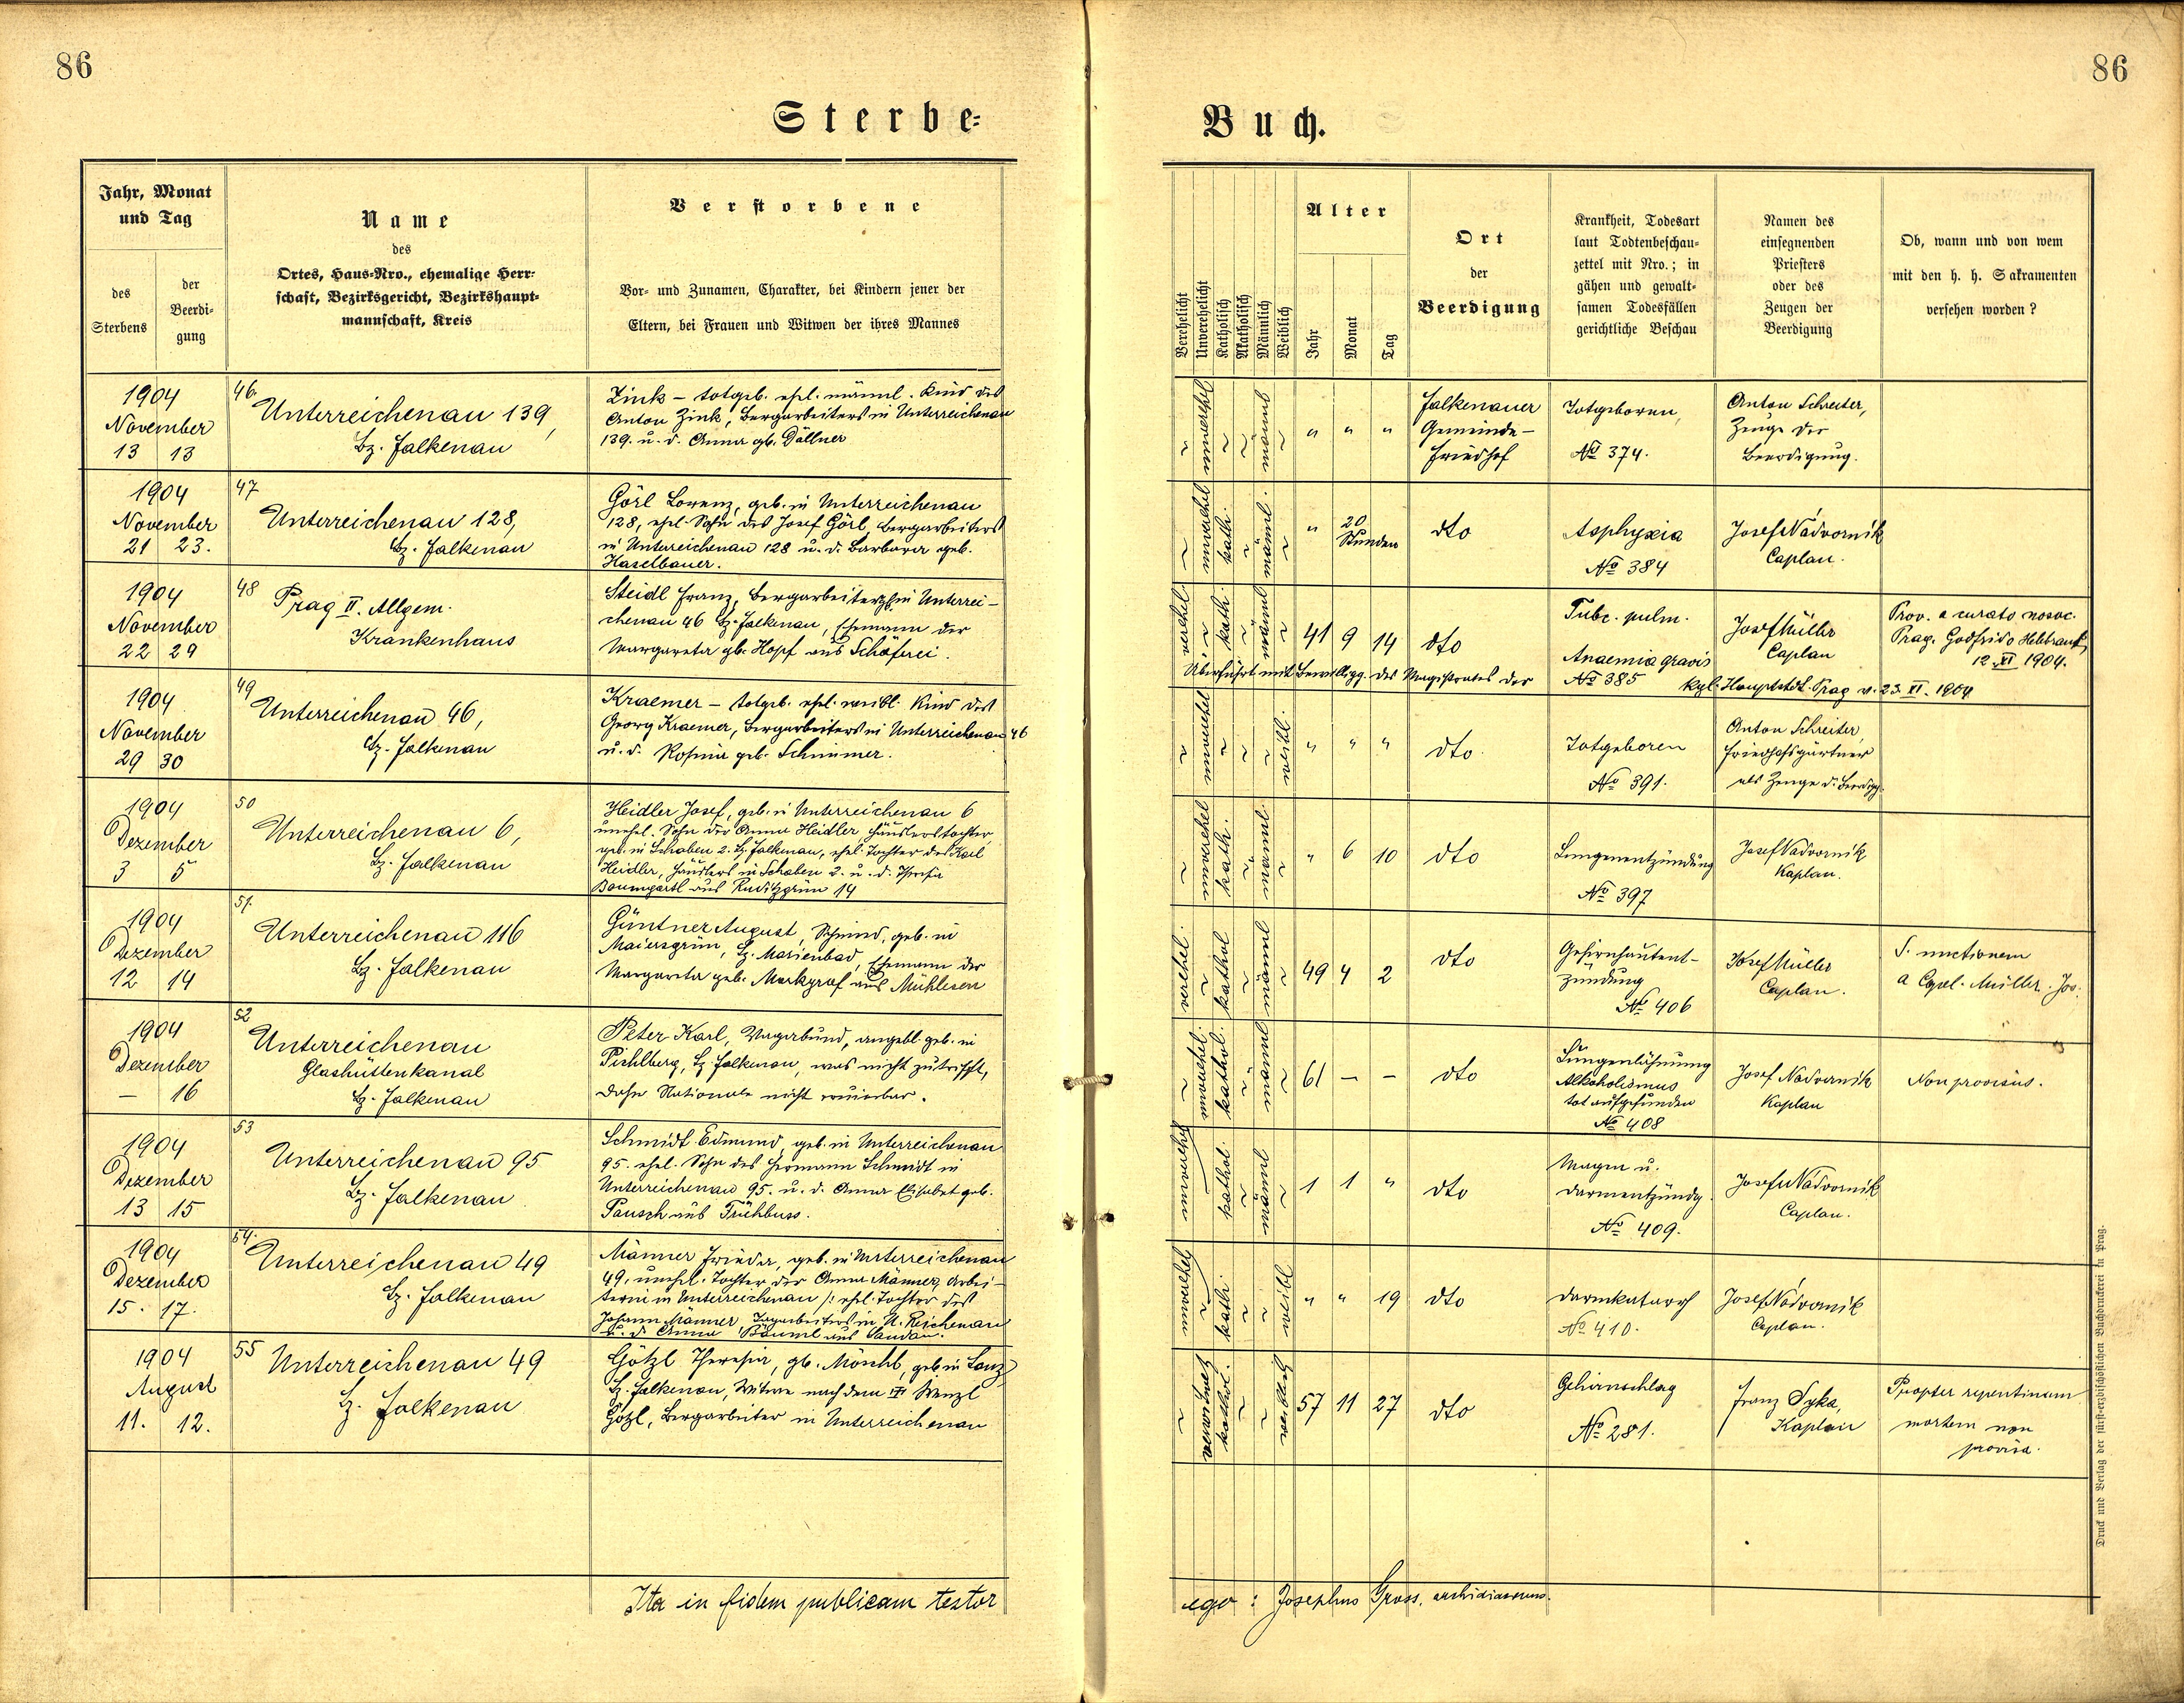 86
86
Sterbe-
Buch.
Jahr, Monat
und Tag
des
Sterbens
der
Beerdi-
gung
Name
des
Ortes, Haus-Nro., ehemalige Herr-
schaft, Bezirksgericht, Bezirkshaupt-
mannschaft, Kreis
Verstorbene
Vor- und Zunamen, Charakter, bei Kindern jener der
Eltern, bei Frauen und Witwen der ihres Mannes
Verehelicht
Unverehelicht
Katholisch
Akatholisch
Männlich
Weiblich
Alter
Jahr
Monat
Tag
Ort
der
Beerdigung
Krankheit, Todesart
laut Todtenbeschau-
zettel mit Nro.; in
gähen und gewalt-
samen Todesfällen
gerichtliche Beschau
Namen des
einsegnenden
Priesters
oder des
Zeugen der
Beerdigung
Ob, wann und von wem
mit den h. h. Sakramenten
versehen worden?
1904
November
13 13
46.
Unterreichenau 139,
Bz. Falkenau
Zink – totgeb. ehl. männl. Kind des
Anton Zink, Bergarbeiters in Unterreichenau
139. u. d. Anna gb. Döllner
unverehl
männl
" " "
Falkenauer
Gemeinde-
Friedhof
Totgeboren,
No 374.
Anton Schreiter,
Zeuge der
Beerdigung.
1904
November
21 23.
47
Unterreichenau 128,
Bz. Falkenau
Görl Lorenz, geb. in Unterreichenau
128, ehel. Sohn des Josef Görl, Bergarbeiters
in Unterreichenau 128 u. d. Barbara geb.
Haselbauer.
unverehel
kath.
männl.
" 20
Stunden
dto
Asphyxia
No 384
Josef Nádvorník
Caplan.
1904
November
22 29
48
Prag II. Allgem.
Krankenhaus
Steidl Franz, Bergarbeiter in Unterrei-
chenau 46 Bz. Falkenau, Ehemann der
Margareta gb. Hopf aus Schäferei.
verehel
kath.
männl
41 9 14
dto
Tubc. pulm.
Anaemia gravis
No 385
Josef Müller
Caplan
Prov. a curato nosoc.
Prag. Godfrido
12. XI 1904.
Überführt mit Bewilligg. des Magistrates der
kgl. Hauptstdt. Prag v. 23. XI. 1904
1904
November
29 30
49
Unterreichenau 46,
Bz. Falkenau
Kraemer – totgeb. ehel. weibl. Kind des
Georg Kraemer, Bergarbeiters in Unterreichenau 46
u. d. Rosina geb. Schimmer.
unverehel
weibl.
" " "
dto.
Totgeboren
No 391.
Anton Schreiter,
Friedhofsgärtner
als Zeuge d. Beerdigg.
1904
Dezember
3 5
50
Unterreichenau 6,
Bz. Falkenau
Heidler Josef, geb. in Unterreichenau 6
unehel. Sohn der Anna Heidler, Häuslerstochter,
geb. in Schaben 2. Bz. Falkenau, ehel. Tochter des Karl
Heidler, Häuslers in Schaben 2. u. d. Theresia
Baumgartl aus Ruditzgrün 14
unverehel
kath.
männl.
" 6 10
dto
Lungenentzündung
No 397
Josef Nadvorník
Kaplan.
1904
Dezember
12 14
51.
Unterreichenau 116
Bz. Falkenau
Güntner August, Schmied, geb. in
Maiersgrün, Bz. Marienbad, Ehemann der
Margareta geb. Markgraf aus Mühlesen
verehel.
kathol
männl
49 4 2
dto
Gehirnhautent-
zündung
No 406
Josef Müller
Caplan.
S. unctionem
a Capel. Müller. Jos.
1904
Dezember
– 16
52
Unterreichenau
Glashüttenkanal
Bz. Falkenau
Peter Karl, Vagabund, angebl. geb. in
Pichlberg, Bz. Falkenau, was nicht zutrifft,
daher Nationale nicht eruierbar.
unverehel.
kathol.
männl
61 – –
dto
Lungenlähmung
Alkoholismus
tot aufgefunden
No 408
Josef Nadvorník
Kaplan
Non provisus.
1904
Dezember
13 15
53
Unterreichenau 95
Bz. Falkenau
Schmidt Edmund, geb. in Unterreichenau
95. ehel. Sohn des Hermann Schmidt in
Unterreichenau 95. u. d. Anna Elisabet geb.
Pausch aus Frühbuss.
unverehel
kathol.
männl
1 1 "
dto
Magen u.
darmentzündg.
No 409.
Josef Nádvorník
Caplan.
1904
Dezember
15. 17.
54.
Unterreichenau 49
Bz. Falkenau
Männer Frieda, geb. in Unterreichenau
49. unehel. Tochter der Anna Männer, Arbei-
terin in Unterreichenau /: ehel. Tochter des
Johann Männer, Tagarbeiters in U. Reichenau
u. d. Anna Bäuml aus Sandau.
unverehel
kath.
weibl
" " 19
dto
Darmkatarrh
No 410.
Josef Nádvorník
Caplan.
1904
August
11. 12.
55
Unterreichenau 49
Bz. Falkenau
Götzl Theresia, gb. Möschl, geb. in Lanz,
Bz. Falkenau, Witwe nach dem Wenzl
Götzl, Bergarbeiter in Unterreichenau
verwitwet
kathol.
weiblich
57 11 27
dto
Gehirnschlag
No 281.
Franz Syka,
Kaplan
Propter repentinam
mortem non
provisa.
Ita in fidem publicam testor
ego: Josephus Gross, archidiaconus.
Druck und Verlag der fürst-erzbischöflichen Buchdruckerei in Prag.